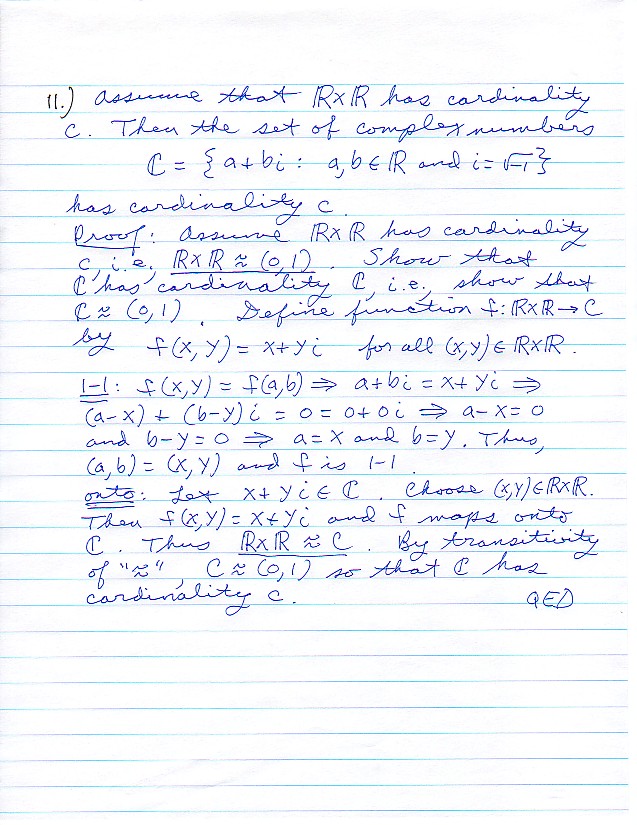 11.) Assume that ℝxℝ has cardinality
c. Then the set of complex numbers
ℂ = { a+bi : a,b ∈ ℝ and i = √-1 }
has cardinality c.
Proof: Assume ℝxℝ has cardinality
c, i.e., ℝxℝ ≈ (0,1). Show that
ℂ has cardinality c, i.e., show that
ℂ ≈ (0,1). Define function f: ℝxℝ → ℂ
by f(x,y) = x+yi for all (x,y) ∈ ℝxℝ.
1-1: f(x,y) = f(a,b) ⇒ a+bi = x+yi ⇒
(a-x) + (b-y)i = 0 = 0+0i ⇒ a-x=0
and b-y=0 ⇒ a=x and b=y. Thus,
(a,b) = (x,y) and f is 1-1.
onto: Let x+yi ∈ ℂ. Choose (x,y) ∈ ℝxℝ.
Then f(x,y) = x+yi and f maps onto
ℂ. Thus ℝxℝ ≈ ℂ. By transitivity
of "≈", ℂ ≈ (0,1) so that ℂ has
cardinality c. QED